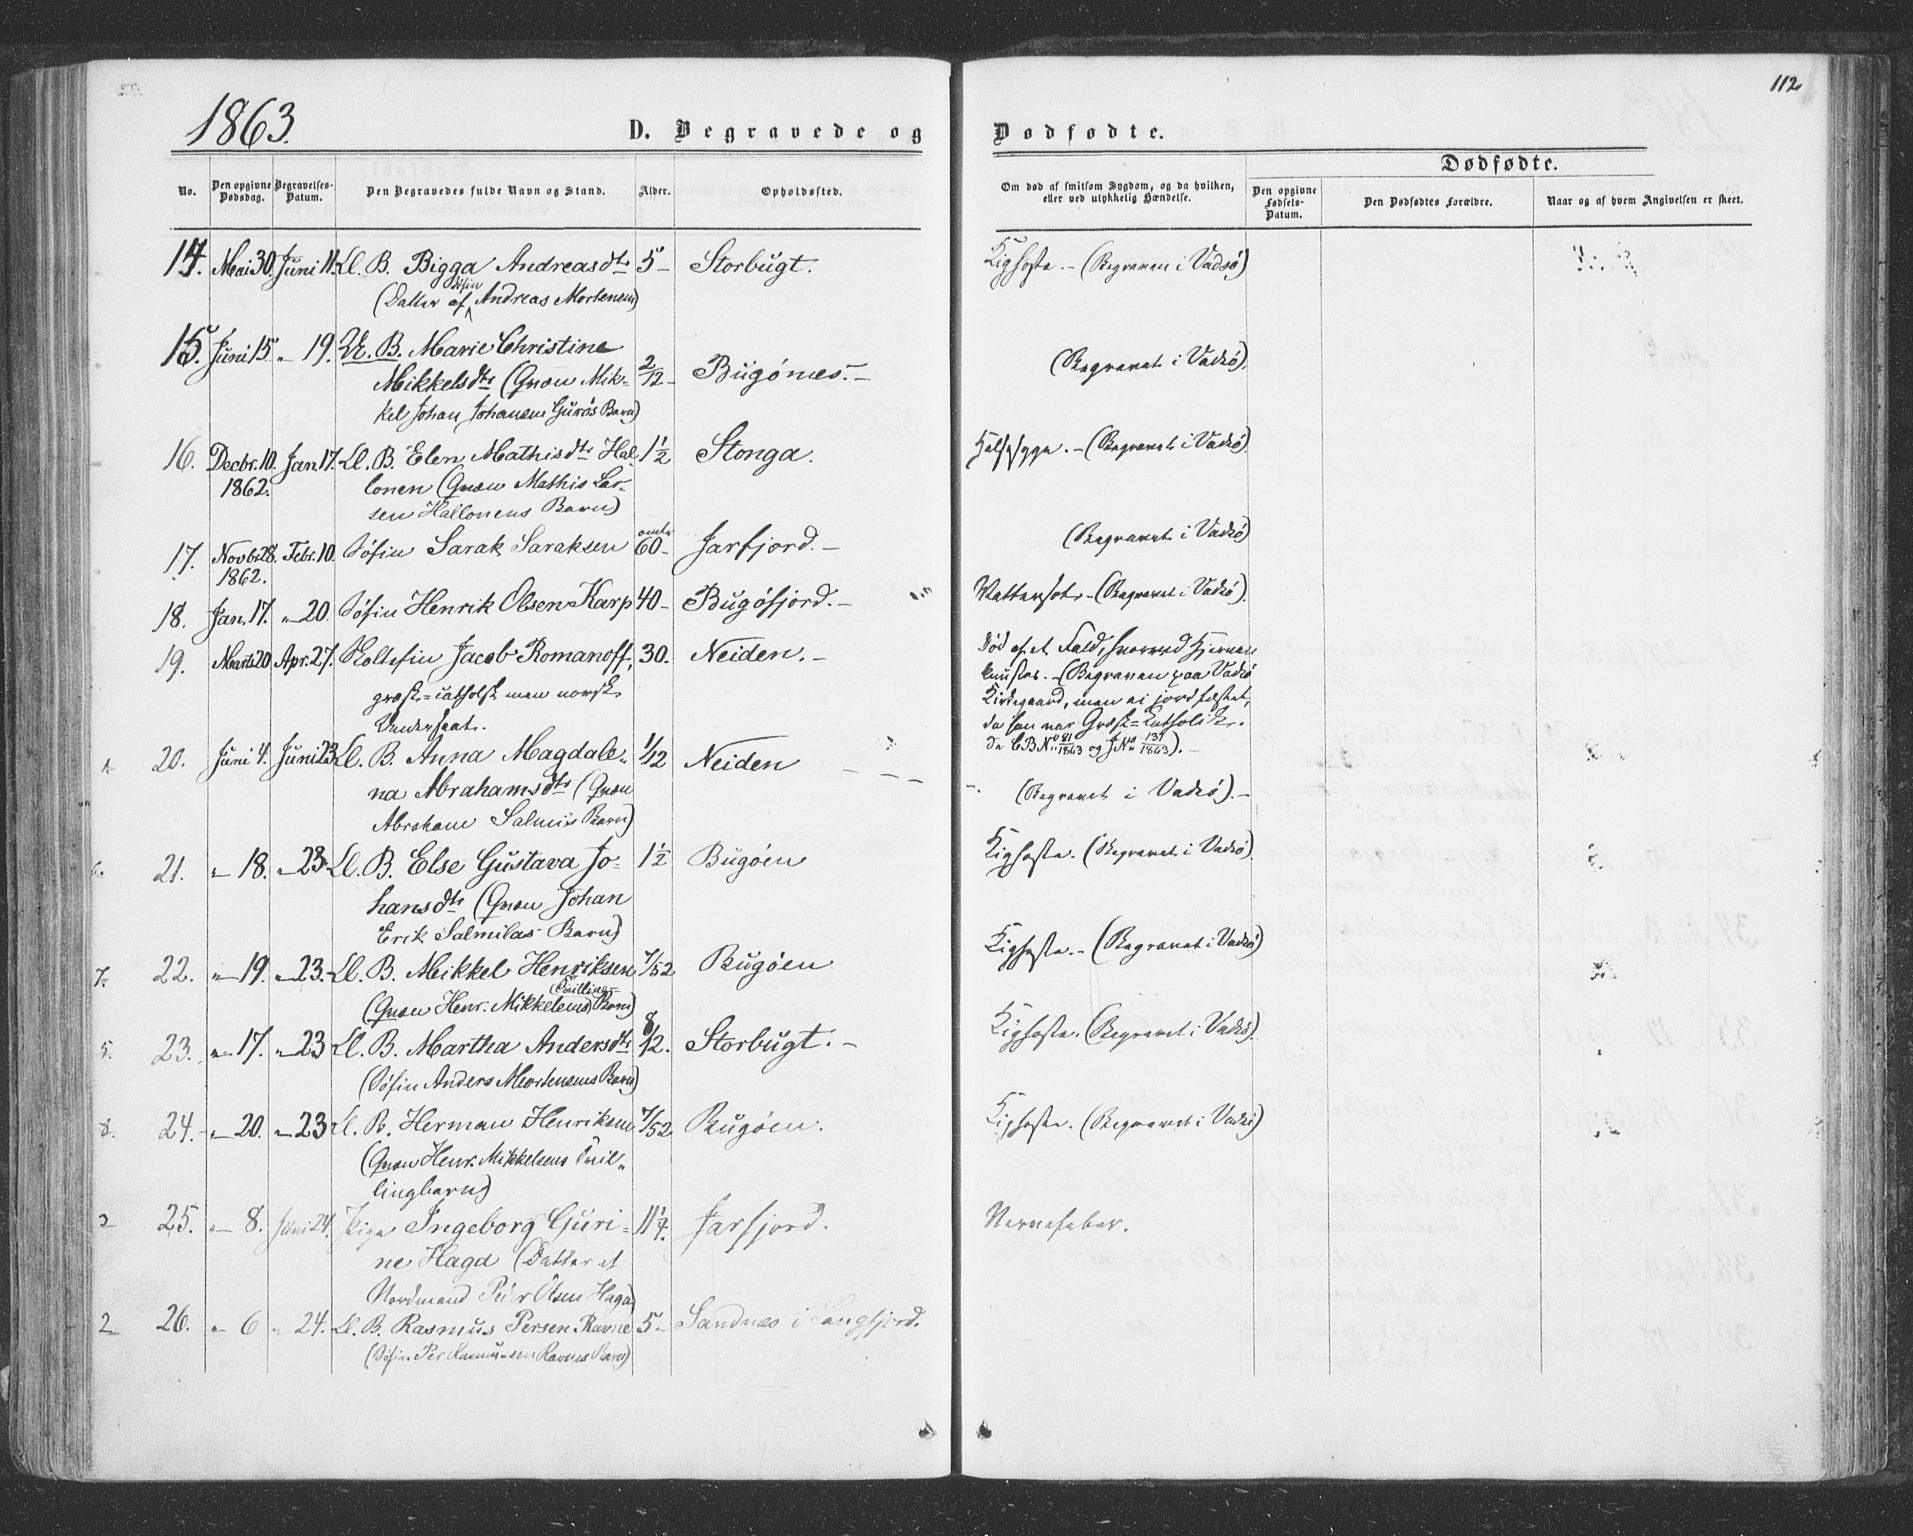 112
1863.
D. Begravede og Dødfødte.
Dødfødte.
No.
Den opgivne Dødsdag.
Begravelses-Datum.
Den Begravedes fulde Navn og Stand.
Alder.
Opholdssted.
Om død af smitsom Sygdom, og da hvilken, eller ved ulykkelig Hændelse.
Den opgivne Fødsels-Datum.
Den Dødfødtes Forældre.
Naar og af hvem Angivelsen er skeet.
14. Mai 30. Juni 11. Ll. B. Bigga Andreasdtr 5 - Storbugt. Kighoste. - (Begraven i Vadsø)
(Datter af Søfin Andreas Mortensen)
15. Juni 15. „ 19. U. B. Marie Christine
Mikkelsdtr (Qvæn Mik- 2/12 - Bugönæs. - (Begravet i Vadsø).
kel Johan Johansen Gurøs Barn)
16. Decbr. 10. Jan. 17. Ll. B. Elen Mathisdtr Hal- 1 1/2 Stonga. Halssyge. - (Begravet i Vadsø).
1862. lonen (Qvæn Mathis Lar-
sen Hallonens Barn)
17. Novbr 28. Febr. 10. Søfin Sarak Saraksen omtr 60 - Jarfjord. - (Begravet i Vadsø)
1862.
18. Jan. 17. „ 20. Søfin Henrik Olsen Karp 40 - Bugöfjord. - Vattersot. - (Begravet i Vadsø).
19. Marts 20. Apr. 27. Skoltefin Jacob Romanoff, 30. Neiden. - Død af et Fald, hvorved Hjernen
græsk-catholsk men norsk knustes. - (Begraven paa Vadsø
Undersaat. Kirkegaard, men ei jordfæstet,
da han var Græsk-Katholik.
20. Juni 4. Juni 23. Ll. B. Anna Magdale- 1/12 Neiden
na Abrahamsdtr (Qvæn (Begravet i Vadsø). -
Abraham Salmis Barn)
21. „ 18. „ 23. Ll. B. Else Gustava Jo- 1 1/2 Bugöen Kighoste. (Begravet i Vadsø).
hansdtr (Qvæn Johan
Erik Salmilas Barn)
7. 22. „ 19. „ 23. Ll. B. Mikkel Henriksen 7/52 Bugöen Kighoste. - (Begravet i Vadsø)
(Qvæn Henr. Mikkelsens Tvilling- Barn)
5. 23. „ 17. „ 23 Ll. B. Martha Andersdtr 8/12. Storbugt. - Kighoste. (Begravet i Vadsø).
(Søfin Anders Mortensens Barn)
8. 24. „ 20. „ 23 Ll. B. Herman Henriksen 7/52 Bugöen. Kighoste. (Begravet i Vadsø)
(Qvæn Henr. Mikkelsens Tvil-
lingbarn)
3 25. „ 8. Juni 24. Pige Ingeborg Guri- 11 1/4. Jarfjord. Nervefeber.
ne Haga (Datter af
Nordmand Peder Olsen Haga)
2 26. „ 6 „ 24. Ll. B. Rasmus Persen Ravne 5 - Sandnæs i Langfjord.
(Søfin Per Rasmussen Ravnes Barn)